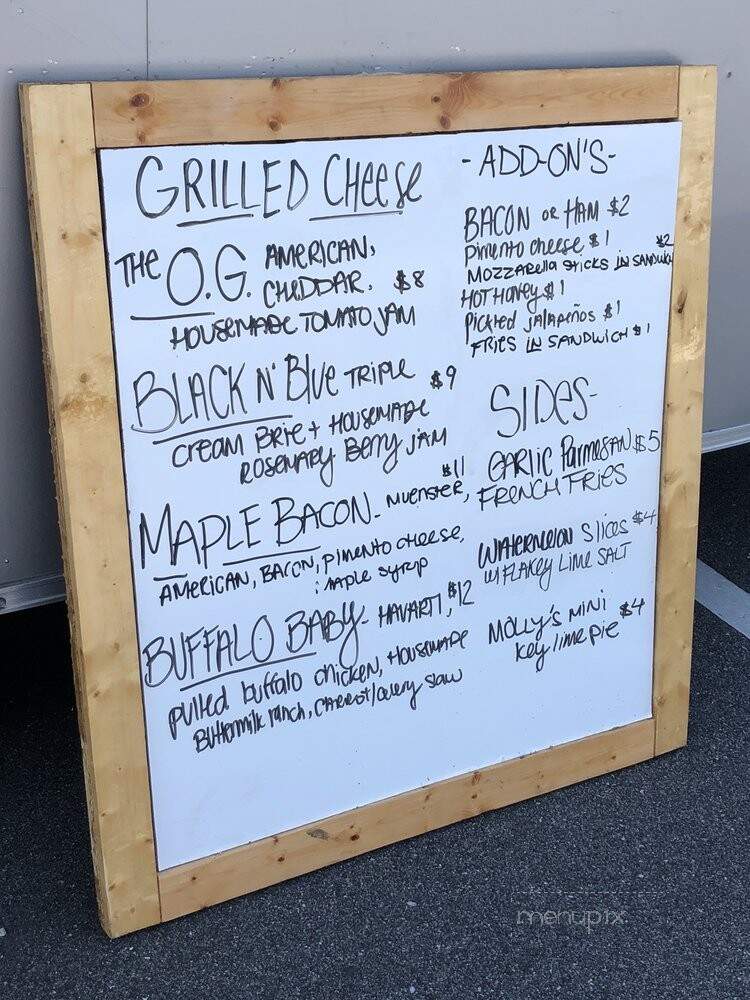 GRILLED CHEESE
THE O.G. AMERICAN,
CHEDDAR, $8
HOUSEMADE TOMATO JAM
BLACK N' BLUE TRIPLE $9
CREAM BRIE + HOUSEMADE
ROSEMARY BERRY JAM
$11
MAPLE BACON- MUENSTER,
AMERICAN, BACON, PIMENTO CHEESE,
: MAPLE SYRUP
BUFFALO BABY- HAVARTI, $12
PULLED BUFFALO CHICKEN, HOUSEMADE
BUTTERMILK RANCH, CARROT/CELERY SLAW
-ADD-ON'S-
BACON OR HAM $2
PIMENTO CHEESE $1
MOZZARELLA STICKS IN SANDWICH $2
HOT HONEY $1
PICKLED JALAPEÑOS $1
FRIES IN SANDWICH $1
SIDES-
GARLIC PARMESAN $5
FRENCH FRIES
WATERMELON SLICES $4
W/ FLAKEY LIME SALT
MOLLY'S MINI $4
KEY LIME PIE
menupix